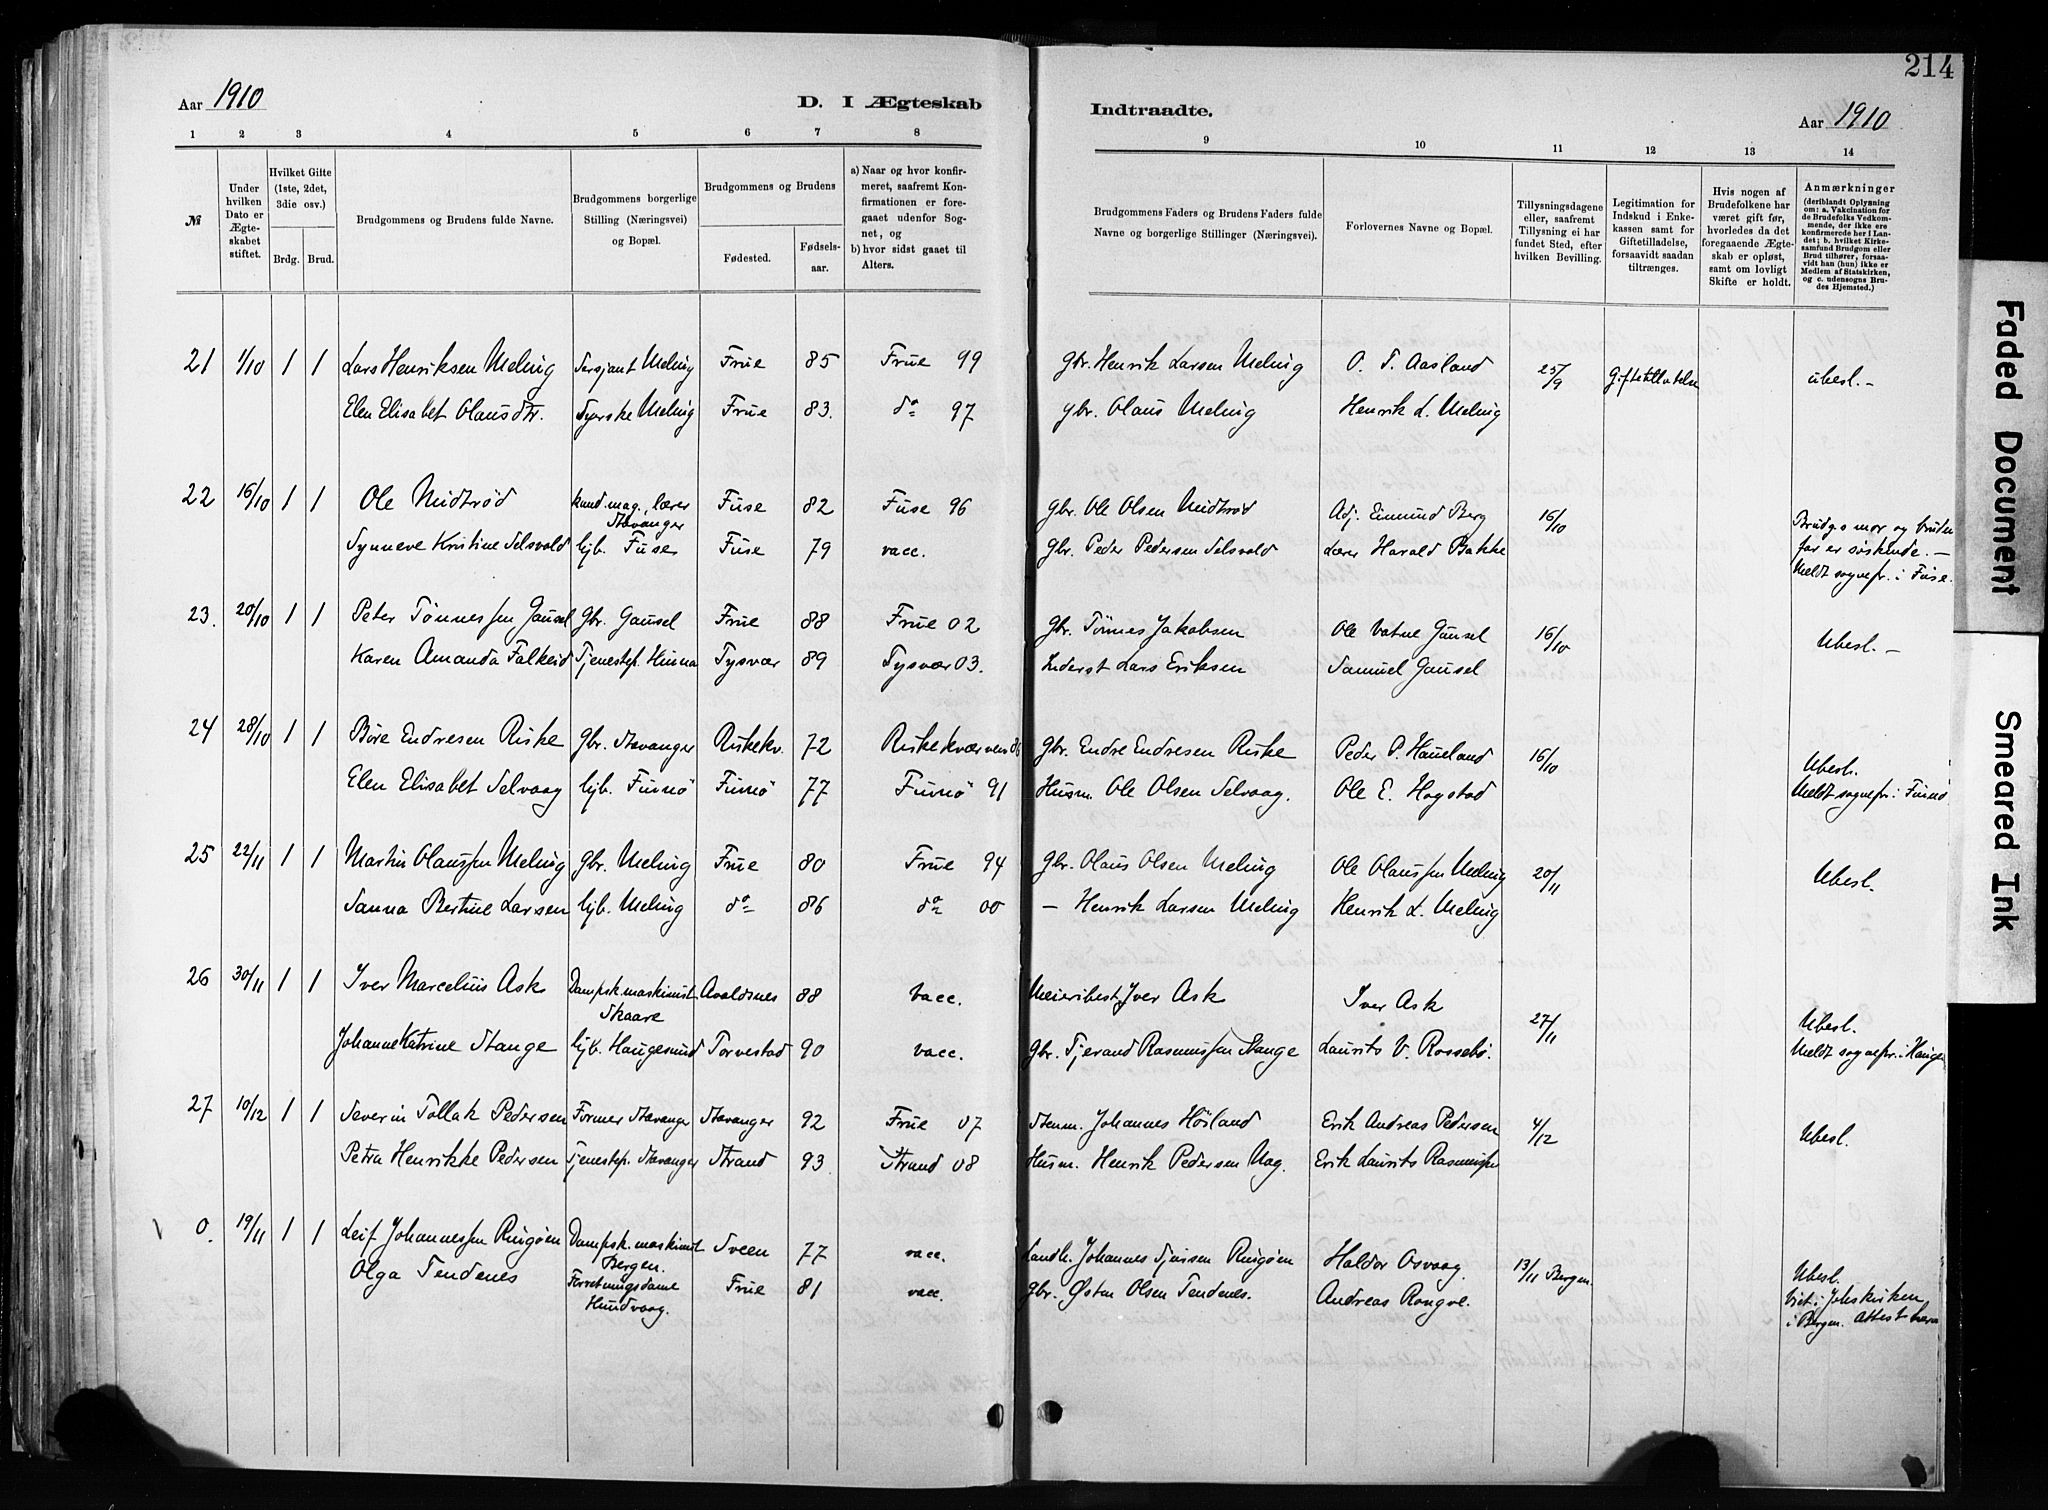 214
Aar 1910
D. I Ægteskab
Indtraadte.
Aar 1910
1 2 3 4 5 6 7 8 9 10 11 12 13 14
№
Under hvilken Dato er Ægteskabet stiftet.
Hvilket Gifte (1ste, 2det, 3die osv.)
Brdg. Brud.
Brudgommens og Brudens fulde Navne.
Brudgommens borgerlige Stilling (Næringsvei) og Bopæl.
Brudgommens og Brudens
Fødested. Fødselsaar.
a) Naar og hvor konfirmeret, saafremt Konfirmationen er foregaaet udenfor Sognet, og
b) hvor sidst gaaet til Alters.
Brudgommens Faders og Brudens Faders fulde Navne og borgerlige Stillinger (Næringsvei).
Forlovernes Navne og Bopæl.
Tillysningsdagene eller, saafremt Tillysning ei har fundet Sted, efter hvilken Bevilling.
Legitimation for Indskud i Enkekassen samt for Giftetilladelse, forsaavidt saadan tiltrænges.
Hvis nogen af Brudefolkene har været gift før, hvorledes da det foregaaende Ægteskab er opløst, samt om lovligt Skifte er holdt.
Anmærkninger (deriblandt Oplysning om: a. Vakcination for de Brudefolks Vedkommende, der ikke ere konfirmerede her i Landet; b. hvilket Kirkesamfund Brudgom eller Brud tilhører, forsaavidt han (hun) ikke er Medlem af Statskirken, og c. udensogns Brudes Hjemsted.)
21 1/10 1 1 Lars Henriksen Meling Sersjant Meling Frue 85 Frue 99 gbr. Henrik Larsen Meling O. T. Aasland 25/9 Giftetilladelse ubesl. -
Elen Elisabet Olausdtr. Syerske Meling Frue 83. do 97 gbr. Olaus Meling Henrik L. Meling
22 16/10 1 1 Ole Midtrød kand. mag., lærer Stavanger Fuse 82 Fuse 96 gbr. Ole Olsen Midtrød Adj. Eimund Berg 16/10 Brudg.s mor og bruden far er søskende. -
Synneve Kristine Selsvold hjb. Fuse Fuse 79 vacc. gbr. Peder Pedersen Selsvold Lærer Harald Bakke Meldt sognepr. i Fuse.
23. 20/10 1 1 Peter Tønnessen Gausel gbr. Gausel Frue 88 Frue 02 gbr. Tønnes Jakobsen Ole Vatne Gausel 16/10 Ubesl. -
Karen Amanda Falkeid Tjenestep. Hinna Tysvær 89 Tysvær 03. Inderst Lars Eriksen Samuel Gausel
24 28/10 1 1 Børe Endresen Riske gbr. Stavanger Riskekv. 72 Riskekværven 86 gbr. Endre Endresen Riske Peder P. Haueland 16/10 Ubesl.
Elen Elisabet Selvaag hjb. Finnø Finnø 77 Finnø 91 Husm. Ole Olsen Selvaag. Ole E. Hogstad Meldt sognepr. i Finnø
25 22/11 1 1 Martin Olaussen Meling gbr. Meling Frue 80 Frue 94 gbr. Olaus Olsen Meling Ole Olaussen Meling 20/11 Ubesl.
Sanna Bertine Larsen hjb. Meling do 86 do 00 - Henrik Larsen Meling Henrik L. Meling
26 30/11 1 1 Iver Marcelius Ask Dampsk. maskinist Skaare Avaldsnes 88 Vacc. Meieribest. Iver Ask Iver Ask 27/11 Ubesl.
Johanne Katrine Stange hjb. Haugesund Torvestad 90 vacc. gbr. Tjerand Rasmussen Stange Laurits V. Rossebø. Meldt sognepr. i Hauges
27 10/12 1 1 Severin Tollak Pedersen Former Stavanger Stavanger 92 Frue 07 Stenm. Johannes Hösland Erik Andreas Pedersen 4/12 Ubesl.
Petra Henrikke Pedersen Tjenestep. Stavanger Strand 93 Strand 08 Husm. Henrik Pedersen Nag. Erik Laurits Rasmussen
0. 19/11 1 1 Leif Johannessen Ringøen Dampsk. maskinist Bergen. Sveen 77 vacc. Landh. Johannes Sjursen Ringøen Haldor Osvaag 13/11 Bergen. Ubesl.
Olga Tendenes Forretningsdame Hundvaag. Frue 81 vacc. gbr. Østen Olsen Tendenes. Andreas Rongve. Viet i Johskirken i Bergen. Attest
Faded Document
Smeared Ink